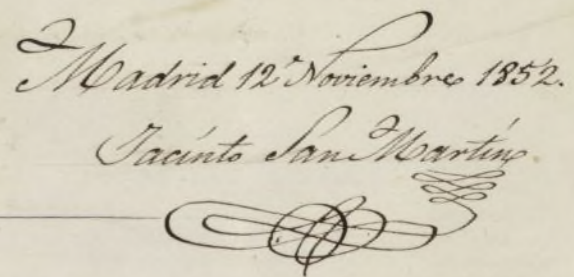 Madrid 12 Noviembre 1852.
Jacinto San Martín